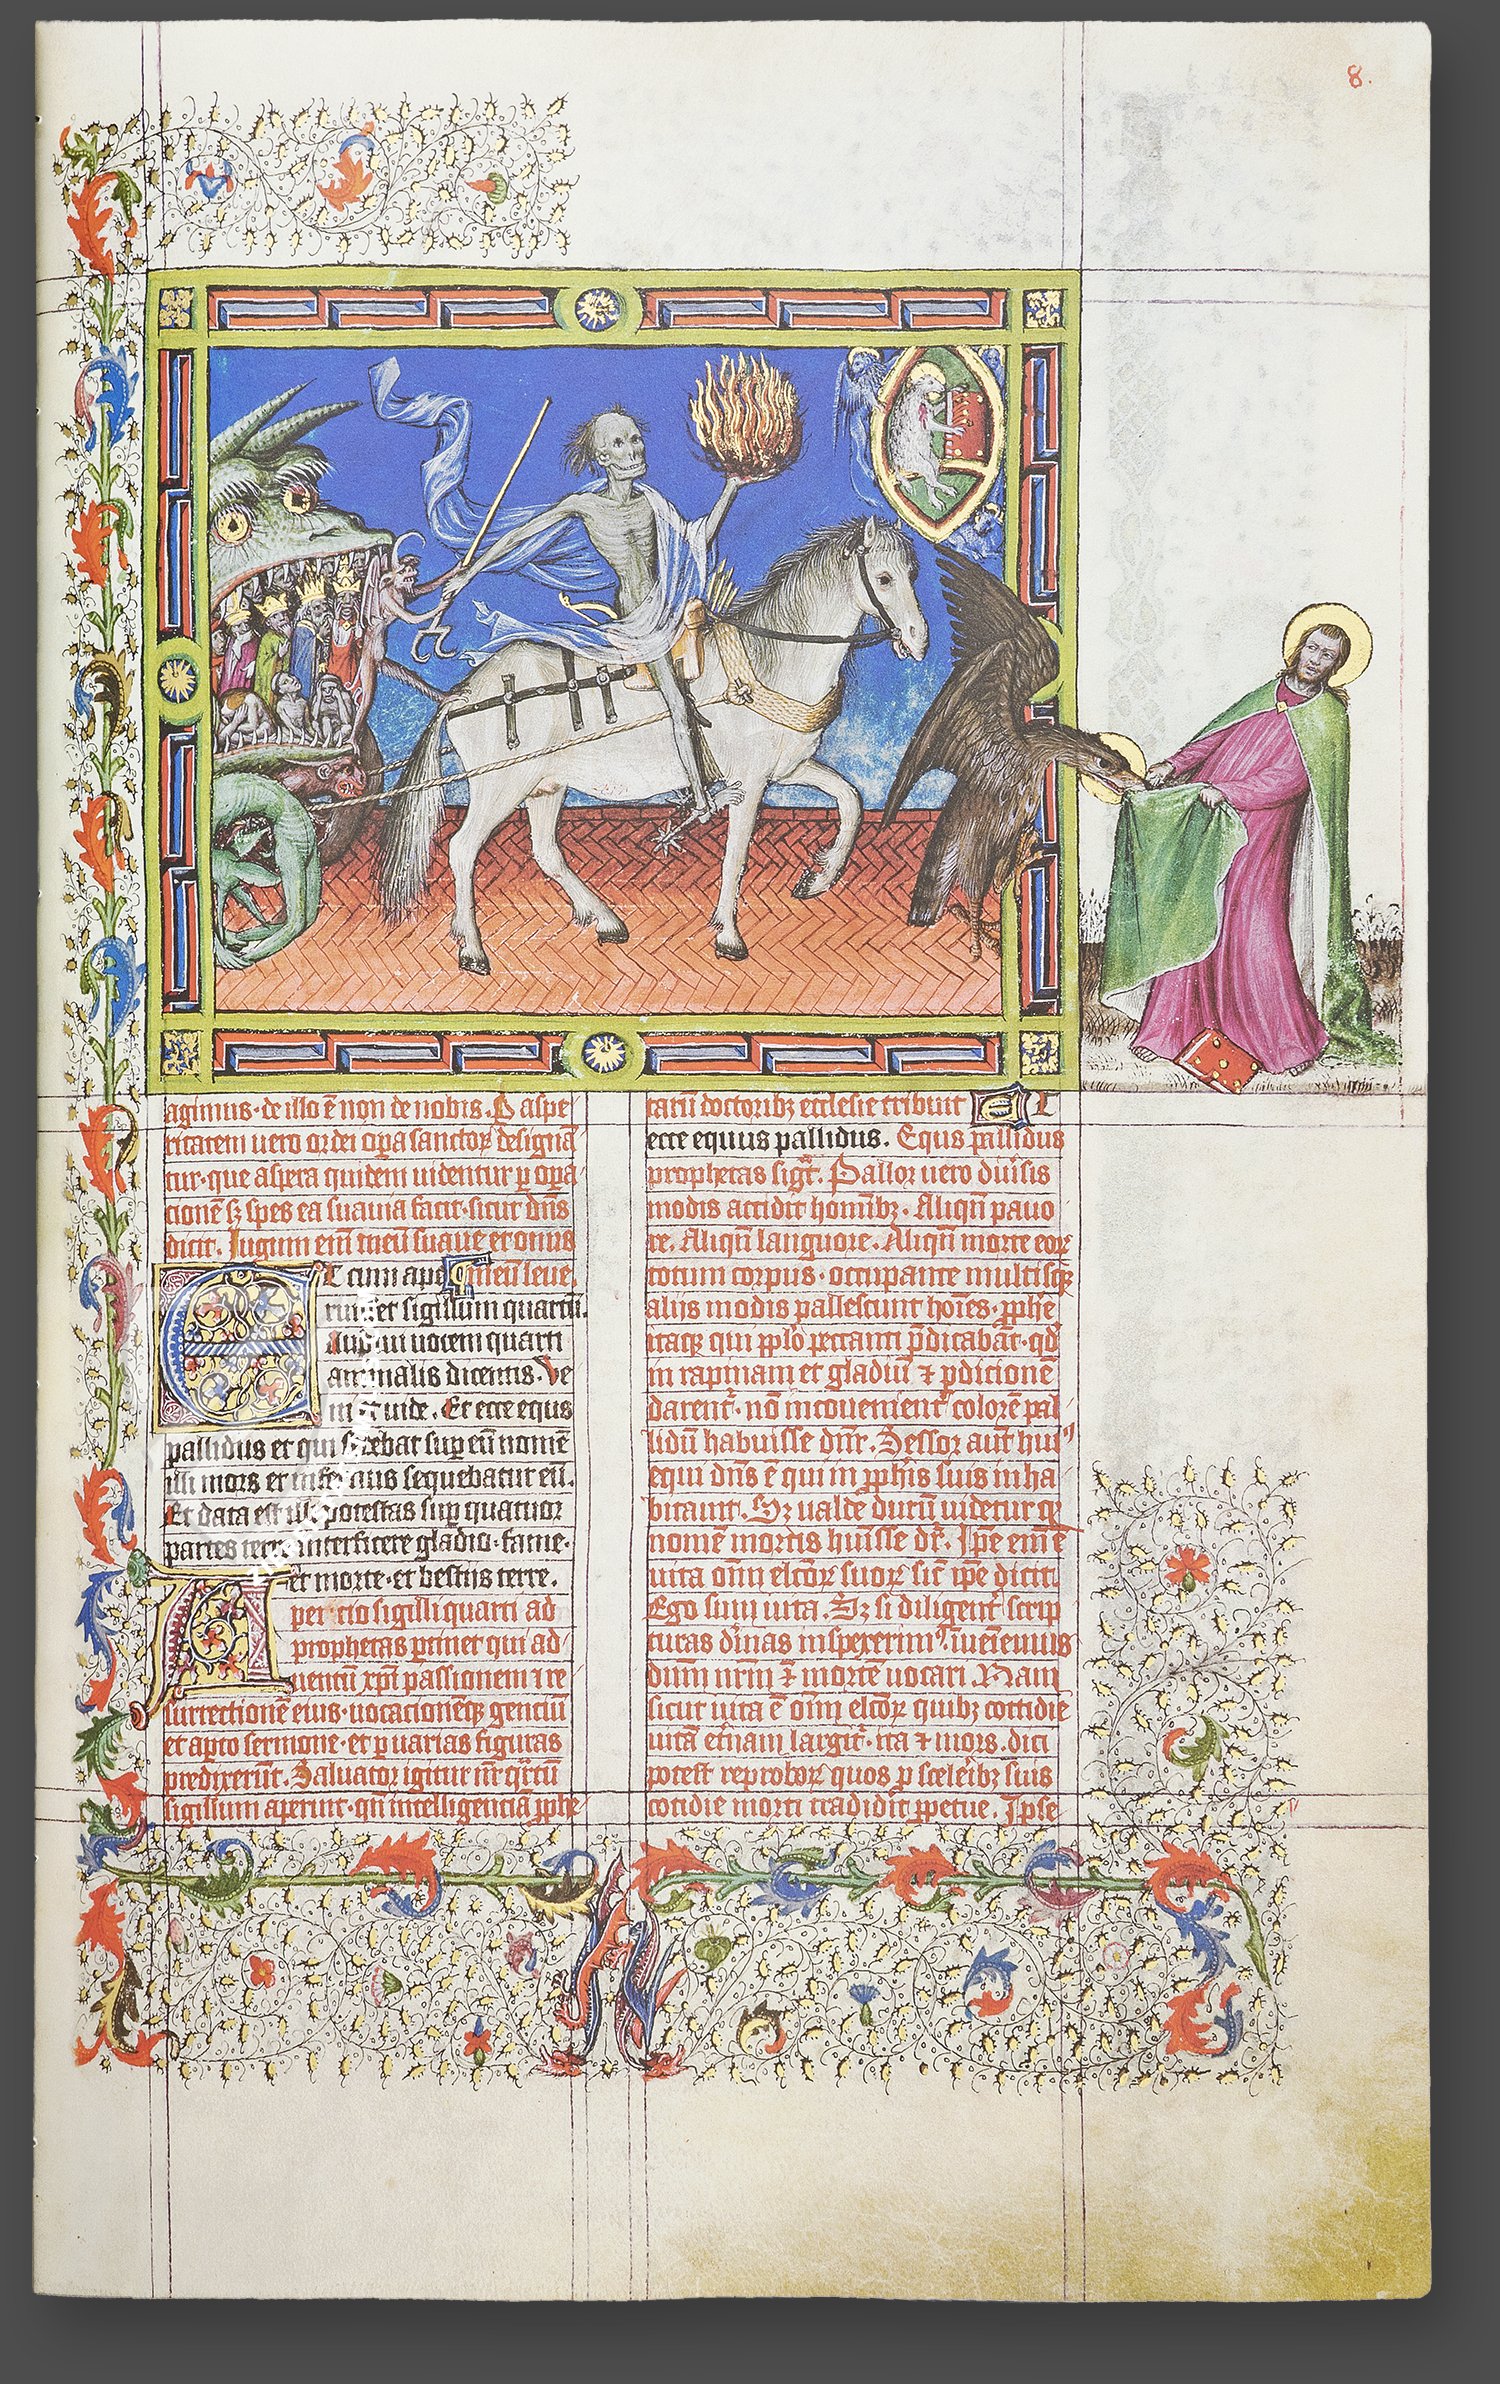 8.
agimus. de illo ē non de nobis. P aspe
ritatem uero ordei opa sanctoꝝ designā
tur. que aspera quidem uidentur ꝑ opa
cionē sꝫ spes ea suauia facit. sicut dn̄s
dicit. Jugum em̄ meū suaue et onus
meū leue.
Et cum ape
ruisset sigillum quartū.
Audiui uocem quarti
animalis dicentis. Ve
ni et uide. Et ecce equs
pallidus et qui sedebat sup eū nomē
illi mors et infernus sequebatur eū.
Et data est illi potestas sup quatuor
partes terre interficere gladio. fame.
et morte. et bestijs terre.
Apercio sigilli quarti ad
prophetas ꝑtinet qui ad
uentū xp̄i passionem ⁊ re
surrectionē eius. uocacionēqꝫ gentiū
et apto sermone. et ꝑ uarias figuras
predixerūt. Saluator igitur nr̄ qrtū
sigillum aperuit. qn̄ intelligenciā ꝓphe
tarū doctoribꝫ ecclesie tribuit Et
ecce equus pallidus. Equs pallidus
prophetas sigt. Pallor uero diuisis
modis accidit homībꝫ. Aliqn̄ pauo
re. Aliqn̄ languore. Aliqn̄ morte eoꝝ
totum corpus. occupante multisqꝫ
alijs modis pallescunt hoīes. ꝓphe
itaqꝫ qui pplo peccanti p̄dicabāt. qd
in rapinam et gladiū ⁊ ꝑdicionē
darent. nō incōuenient colorē pal
lidū habuisse dn̄r. Sessor aut hui
equi dn̄s ē qui in ꝓphis suis inha
bitauit. Sꝫ ualde durū uidetur qꝫ
nomē mortis huisse dr̄. Ipe em̄ ē
uita om̄ elc̄oꝝ suoꝝ sic ipe dicit
Ego sum uita. Sꝫ si diligent scrip
turas diuinas inspexerim īueniemus
dn̄m nr̄m ⁊ mortē uocari. Nam
sicut uita ē om̄ elc̄oꝝ quibꝫ cottidie
uitā et̄nam largit. ita ⁊ mors. dici
potest reproboꝝ quos ꝑ sceleribꝫ suis
cotidie morti tradidit ꝑpetue. Ipse